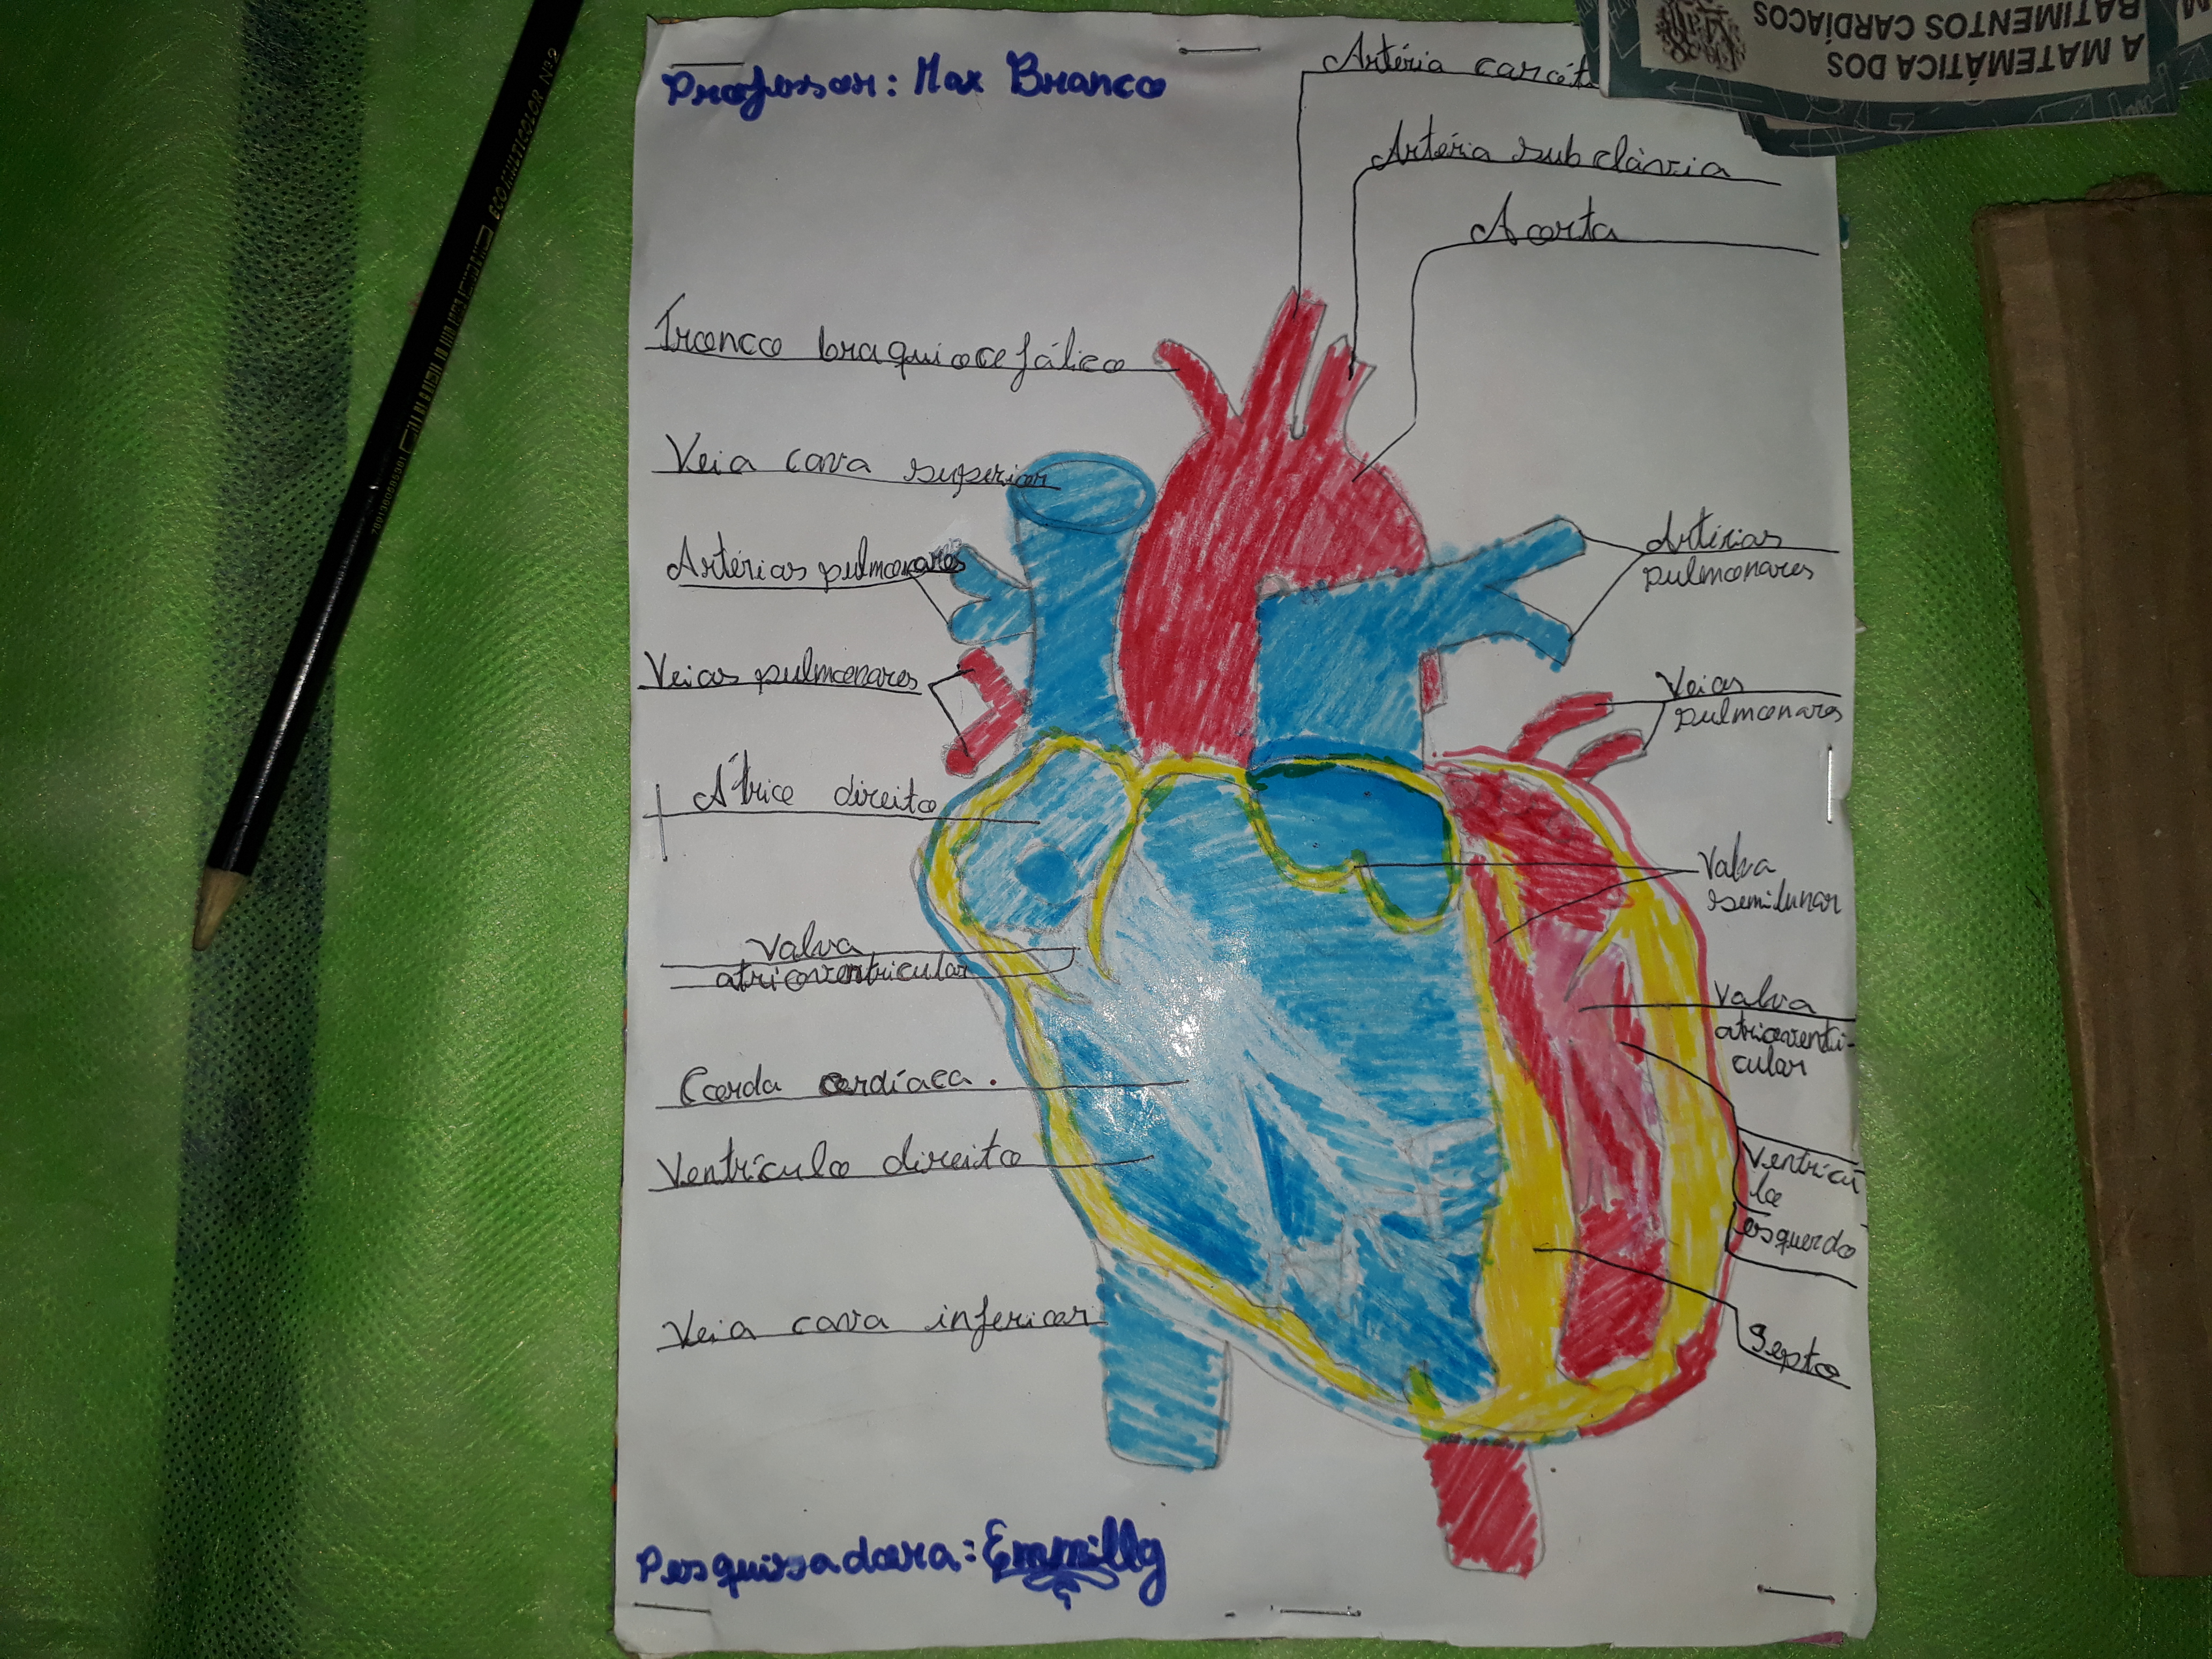 Professor: Max Branco
Artéria
Artéria subclávia
Aorta
Tronco braquiocefálico
Veia cava superior
Artérias pulmonares
Veias pulmonares
Átrio direito
Valva
atrioventricular
Corda cardíaca.
Ventrículo direito
Veia cava inferior
Artérias
pulmonares
Veias
pulmonares
Valva
semilunar
Valva
atrioventri-
cular
Ventrícu
lo
esquerdo
Septo
Pesquisadora: Emmilly
A MATEMÁTICA DOS
BATIMENTOS CARDÍACOS
ECO MULTICOLOR Nº2